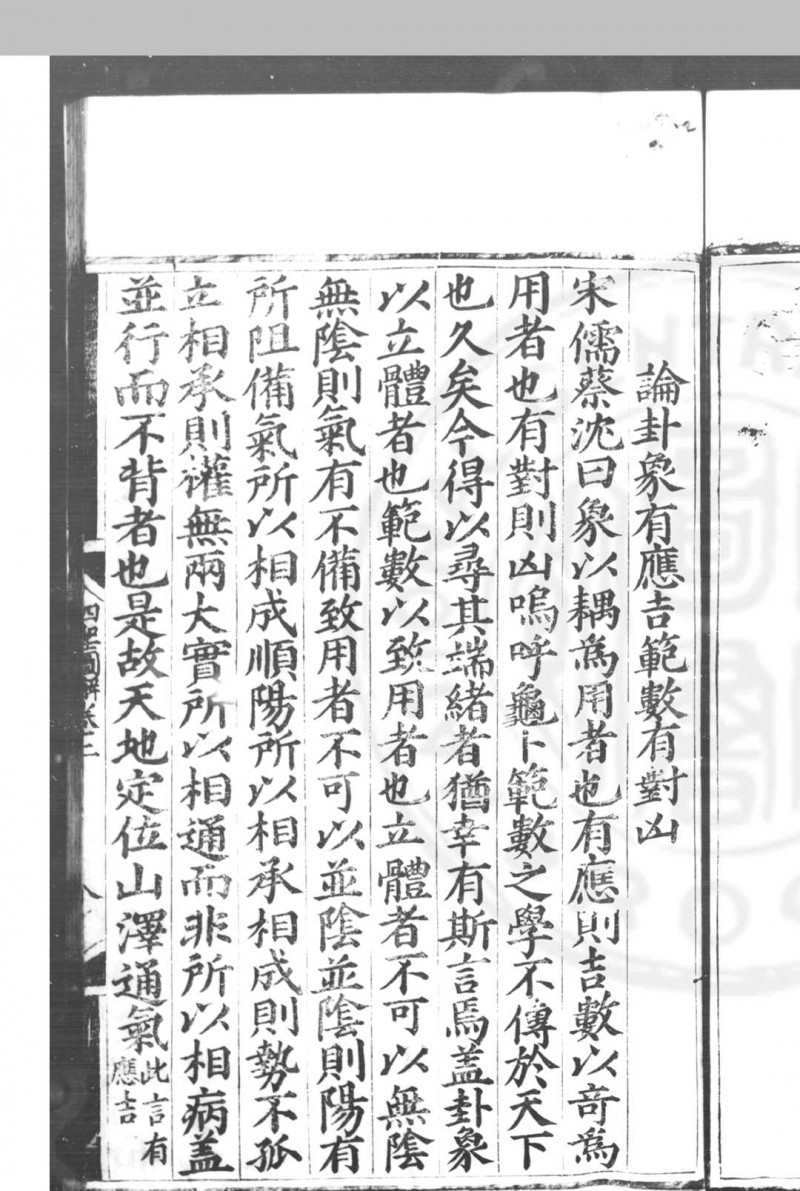 論卦象有應吉範數有對凶
宋儒蔡沈曰象以耦為用者也有應則吉數以竒為
用者也有對則凶嗚呼龜卜範數之學不傳於天下
也久矣今得以尋其端緒者猶幸有斯言焉盖卦象
以立體者也範數以致用者也立體者不可以無陰
無陰則氣有不備致用者不可以並陰並陰則陽有
所阻備氣所以相成順陽所以相承相成則勢不孤
立相承則權無兩大實所以相通而非所以相病盖
並行而不背者也是故天地定位山澤通氣此言有
應吉
四聖圖解卷二